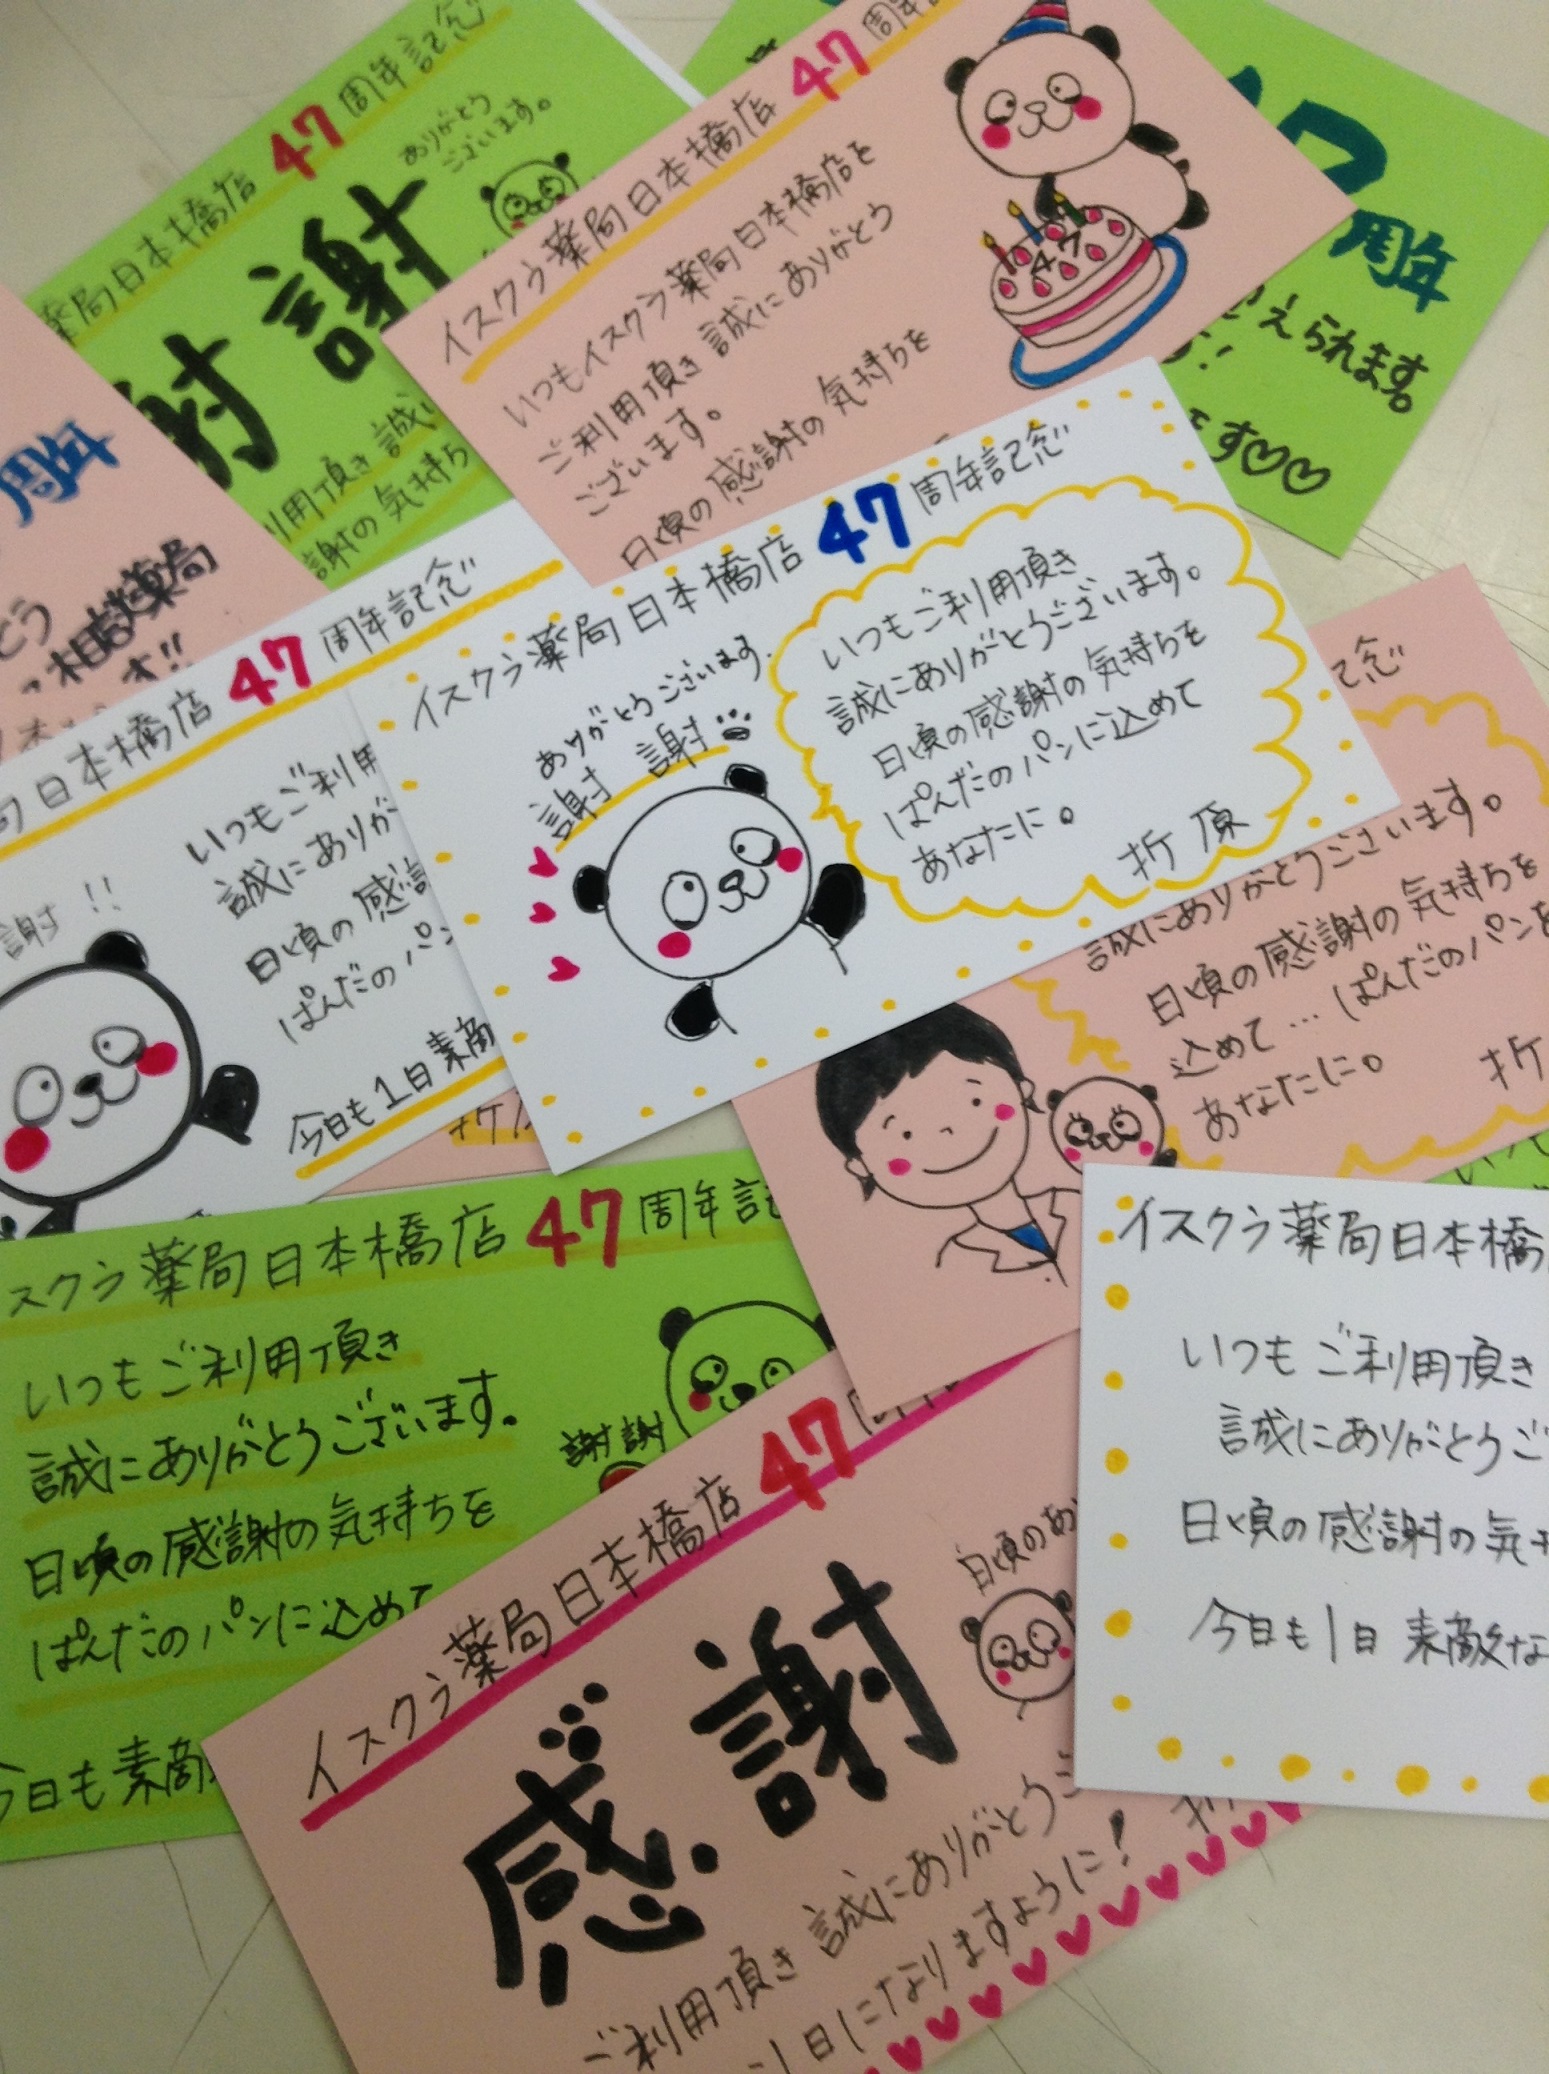 薬局日本橋店 47 周年記念
ありがとう
ございます。
謝 謝
利用頂き
謝の気持ち
イスクラ薬局日本橋店 47
いつもイスクラ薬局日本橋店を
ご利用頂き 誠にありがとう
ございます。
日頃の感謝の気持ちを
47
周年
えられます。
す!
ます♡♡
周年
とう
相談薬局
す!!
日本橋店 47 周年記念
いつもご利用
誠にありが
日頃の感謝
ぱんだのパン
謝!!
今日も1日素敵
イスクラ薬局日本橋店 47 周年記念
ありがとうございます。
謝謝
いつもご利用頂き
誠にありがとうございます。
日頃の感謝の気持ちを
ぱんだのパンに込めて
あなたに。
折原
記念
誠にありがとうございます。
日頃の感謝の気持ちを
込めて…ぱんだのパンを
あなたに。
折
スクラ薬局日本橋店 47 周年記
いつもご利用頂き
誠にありがとうございます。
日頃の感謝の気持ちを
ぱんだのパンに込めて
今日も素敵
謝謝
イスクラ薬局日本橋店 47
日頃のあ
感謝
ご利用頂き 誠にありがとうご
1日になりますように!
イスクラ薬局日本橋
いつもご利用頂き
誠にありがとうご
日頃の感謝の気持
今日も1日 素敵な